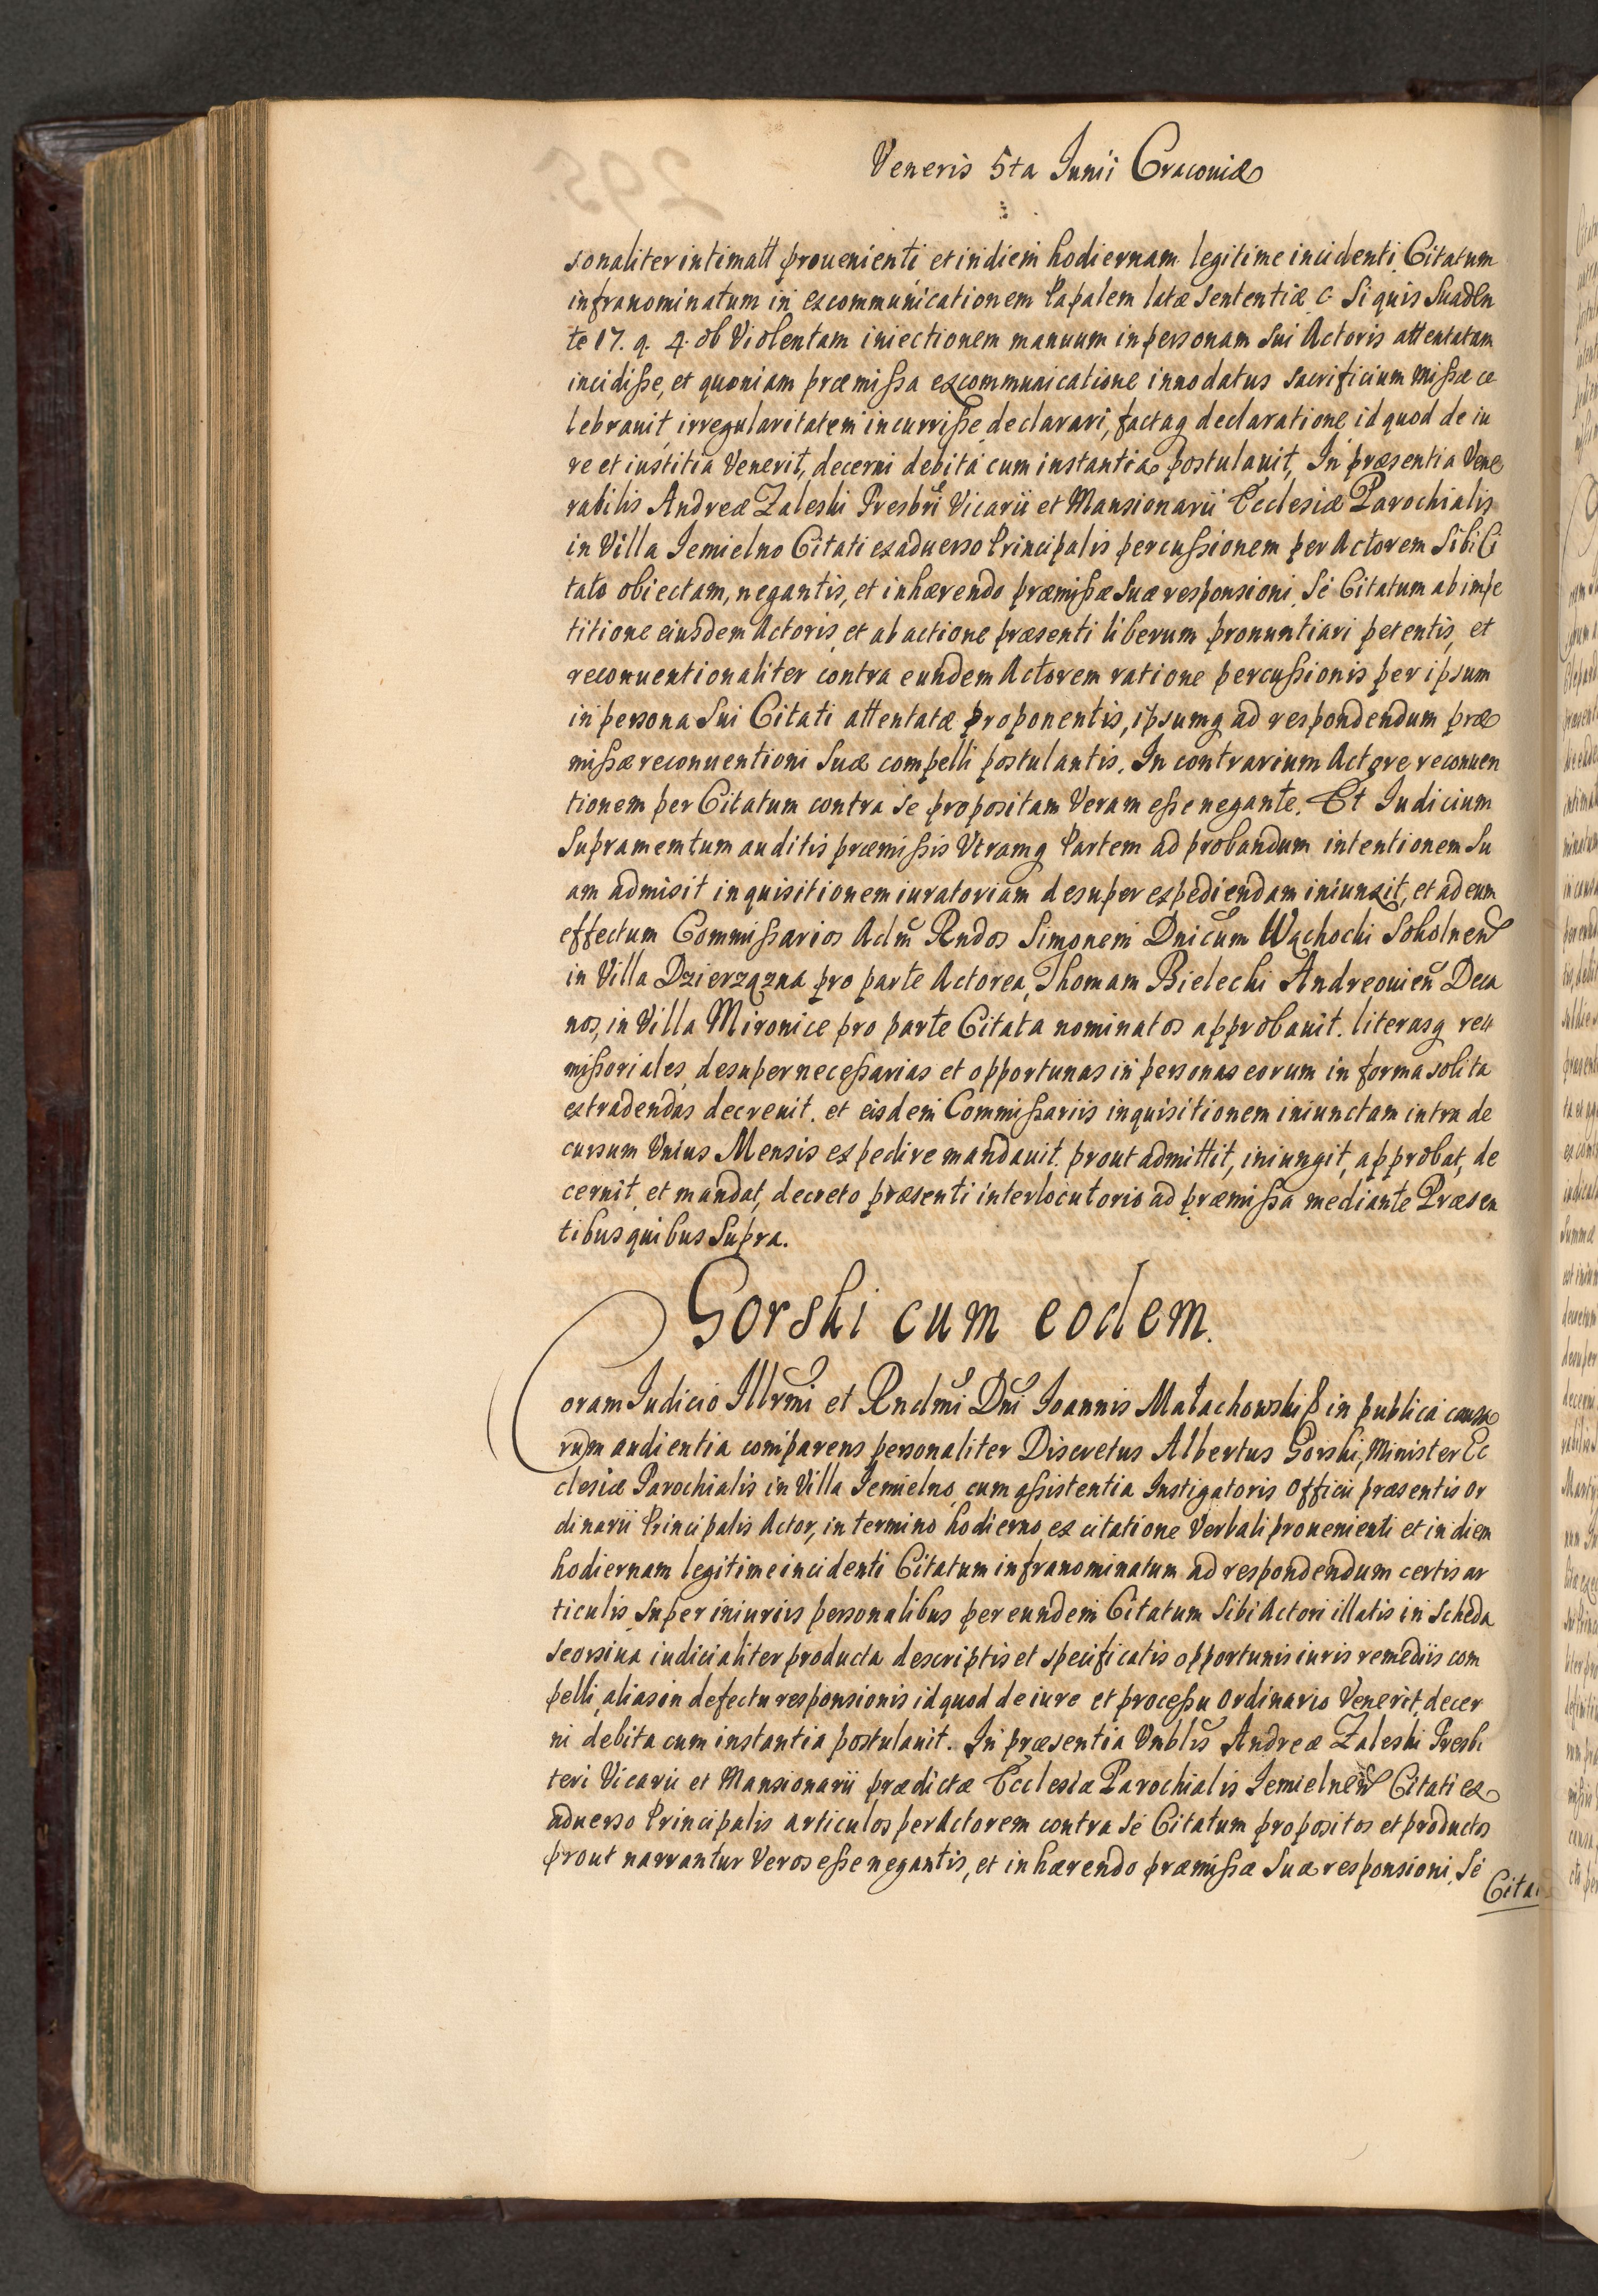 Veneris 5ta Junii Cracouiæ
sonaliter intimatt prouenienti et in diem hodiernam legitime incidenti Citatum
infranominatum in excommunicationem Papalem latæ sententiæ C Si quis Suaden
te 17. q. 4. ob Violentam iniectionem manuum in personam Sui Actoris attentatam
incidiße, et quoniam præmißa excommunicatione innodatus sacrificium Mißæ ce
lebrauit, irregularitatem incurriße declarari, factaq declaratione id quod de iu
re et iustitia Venerit, decerni debita cum instantia postulauit, In præsentia Vene
rabilis Andreæ Zaleski Presbri Vicarii et Mansionarii Ecclesiæ Parochialis
in Villa Jemielno Citati ex aduerso Principalis percußionem per Actorem Sibi Ci
tato obiectam, negantis, et inhærendo præmißæ Suæ responsioni, Se Citatum ab impe
titione eiusdem Actoris, et ab actione præsenti liberum pronuntiari petentis, et
reconuentionaliter contra eundem Actorem ratione percußionis per ipsum
in persona Sui Citati attentatæ proponentis, ipsumq ad respondendum præ
mißæ reconuentioni Suæ compelli postulantis. In contrarium Actore reconuen
tionem per Citatum contra se propositam Veram eße negante. Et Judicium
Supramemtum auditis præmißis Vtramq Partem ad probandum intentionem Su
am admisit inquisitionem iuratoriam desuper expediendam iniunxit, et ad eum
effectum Commißarios Adm̃ Rndos Simonem Dnicum Wąchocki Sokolnen
in Villa Dzierzązna pro parte Actorea, Thomam Bielecki Andreouien Deca
nos, in Villa Mironice pro parte Citata nominatos approbauit. literasq re
mißoriales, desuper neceßarias et opportunas in personas eorum in forma solita
extradendas decreuit. et eisdem Commißariis inquisitionem iniunctam intra de
cursum Vnius Mensis expedire mandauit. prout admittit, iniungit, approbat, de
cernit, et mandat, decreto præsenti interlocutorio ad præmißa mediante Præsen
tibus quibus Supra.
Gorski cum eodem.
Coram Judicio Illrmi et Rndmi Dni Joannis Małachowski ß in publica causa
rum audientia comparens personaliter Discretus Albertus Gorski, Minister Ec
clesiæ Parochialis in Villa Jemielno, cum aßistentia Instigatoris Officii præsentis or
dinarii Principalis Actor, in termino hodierno ex citatione Verbali prouenienti et in diem
hodiernam legitime incidenti Citatum infranominatum ad respondendum certis ar
ticulis, Super iniuriis personalibus per eundem Citatum Sibi Actori illatis in Scheda
seorsiua iudicialiter producta descriptis et specificatis opportunis iuris remediis com
pelli, alias in defectu responsionis id quod de iure et proceßu ordinario Venerit, decer
ni debita cum instantia postulauit. In præsentia Vnblis Andreæ Zaleski Presbi
teri Vicarii et Mansionarii prædictæ Ecclesiæ Parochialis Jemielnen Citati ex
aduerso Principalis articulos per Actorem contra Se Citatum propositos et productos
prout narrantur Veros eße negantis, et inhærendo præmißæ Suæ responsioni, Se